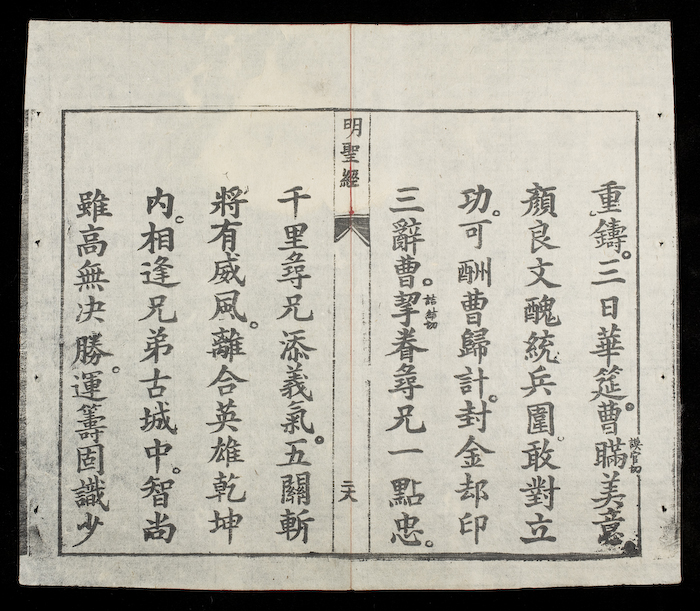 重鑄。三日華筵。曹瞞美意
謨官切
顏良文醜統兵圍。敢對立
功。可酬曹歸計。封金却印
三辭曹。挈眷尋兄一點忠。
詰結切
明聖經
千里尋兄添義氣。五關斬
將有威風。離合英雄乾坤
內。相逢兄弟古城中。智尚
雖高無决勝。運籌固識少